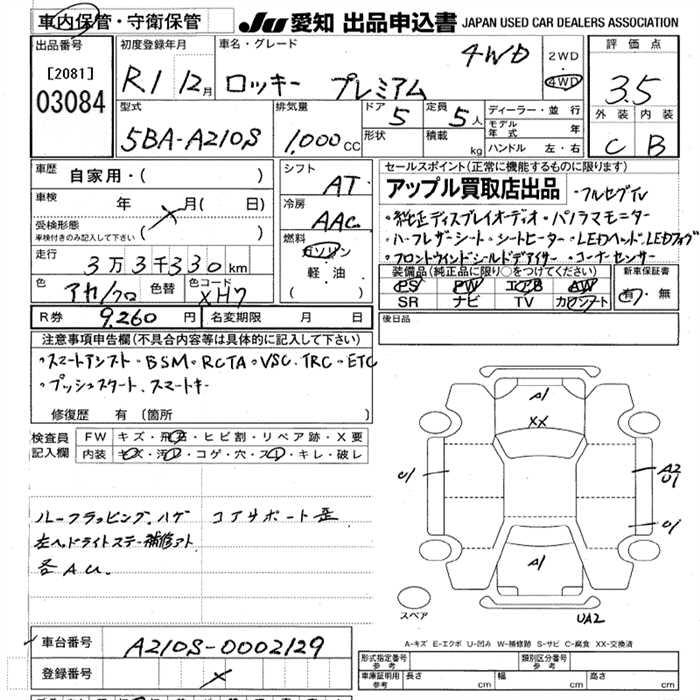 車内保管・守衛保管
JU 愛知 出品申込書 JAPAN USED CAR DEALERS ASSOCIATION
出品番号
[2081]
03084
初度登録年月
R1 12月
車名・グレード
ロッキー プレミアム 4WD
2WD
・
4WD
評価点
3.5
外装 内装
C B
型式
5BA-A210S
排気量
1,000 CC
ドア 5
形状
定員 5人
積載 kg
ディーラー・並行
モデル年式 年
ハンドル 左・右
車歴 自家用・( )
車検 年 月( 日)
受検形態
車検付きのみ記入して下さい
走行
3万3千330km
色 アカ/クロ
色替
色コード XH7
シフト AT
冷房 AAC
燃料
ガソリン
軽・油
( )
R券 9,260円
名変期限 月 日
セールスポイント(正常に機能するものに限ります)
アップル買取店出品 ・フルセグTV
・純正ディスプレイオーディオ・パノラマモニター
・ハーフレザーシート・シートヒーター・LEDヘッド、LEDフォグ
・フロントウインドシールドデアイサー・コーナーセンサー
装備品(純正品に限り○をつけてください)
PS PW エアB AW
SR ナビ TV カワシート
新車保証書
有・無
後日品
注意事項申告欄(不具合内容等は具体的に記入して下さい)
・スマートアシスト・BSM・RCTA・VSC、TRC・ETC
・プッシュスタート、スマートキー
修復歴 有(箇所 )
検査員記入欄
FW キズ・飛石・ヒビ割・リペア跡・X要
内装 キズ・汚れ・コゲ・穴・スレ・キレ・破レ
ルーフラッピング、ハゲ コアサポート歪
左ヘッドライトステー補修アト
各AU.
A1
XX
U1
A2
U1
U1
A1
スペア
UA2
A-キズ E-エクボ U-凹み W-補修跡 S-サビ C-腐食 XX-交換済
車台番号 A210S-0002129
登録番号
形式指定番号
参考
類別区分番号
参考
車庫証明用
参考
長さ cm 幅 cm 高さ cm